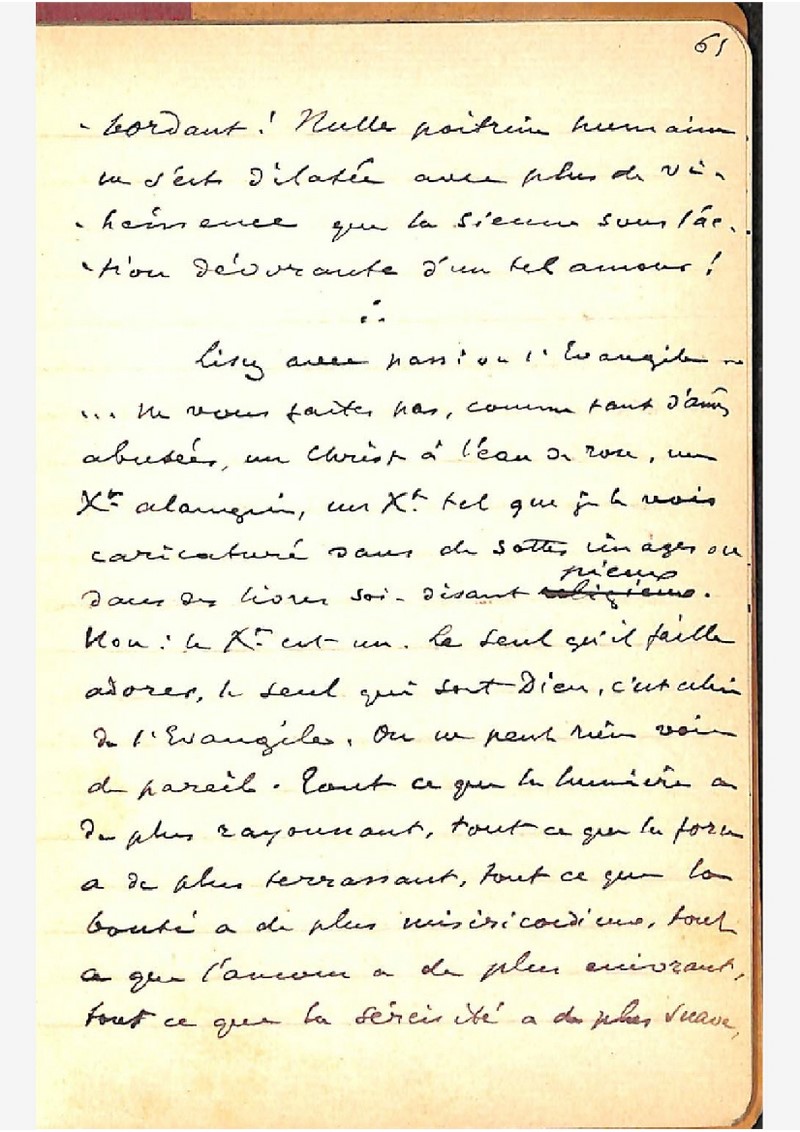 65
- bordant ! Nulle poitrine humaine
ne s'est dilatée avec plus de vé-
- hémence que la sienne sous l'ac-
- tion dévorante d'un tel amour !
∴
Lisez avec passion l'Evangile
... Ne vous faites pas, comme tant d'âmes
abusées, un Christ à l'eau de rose, un
Xt alangui, un Xt tel que je le vois
caricaturé dans de sottes images ou
pieux
dans des livres soi-disant religieux.
Non : le Xt est un. Le seul qu'il faille
adorer, le seul qui soit Dieu, c'est celui
de l'Evangile. On ne peut rien voir
de pareil. Tout ce que la lumière a
de plus rayonnant, tout ce que la force
a de plus terrassant, tout ce que la
bonté a de plus miséricordieux, tout
ce que l'amour a de plus enivrant,
tout ce que la sérénité a de plus suave,